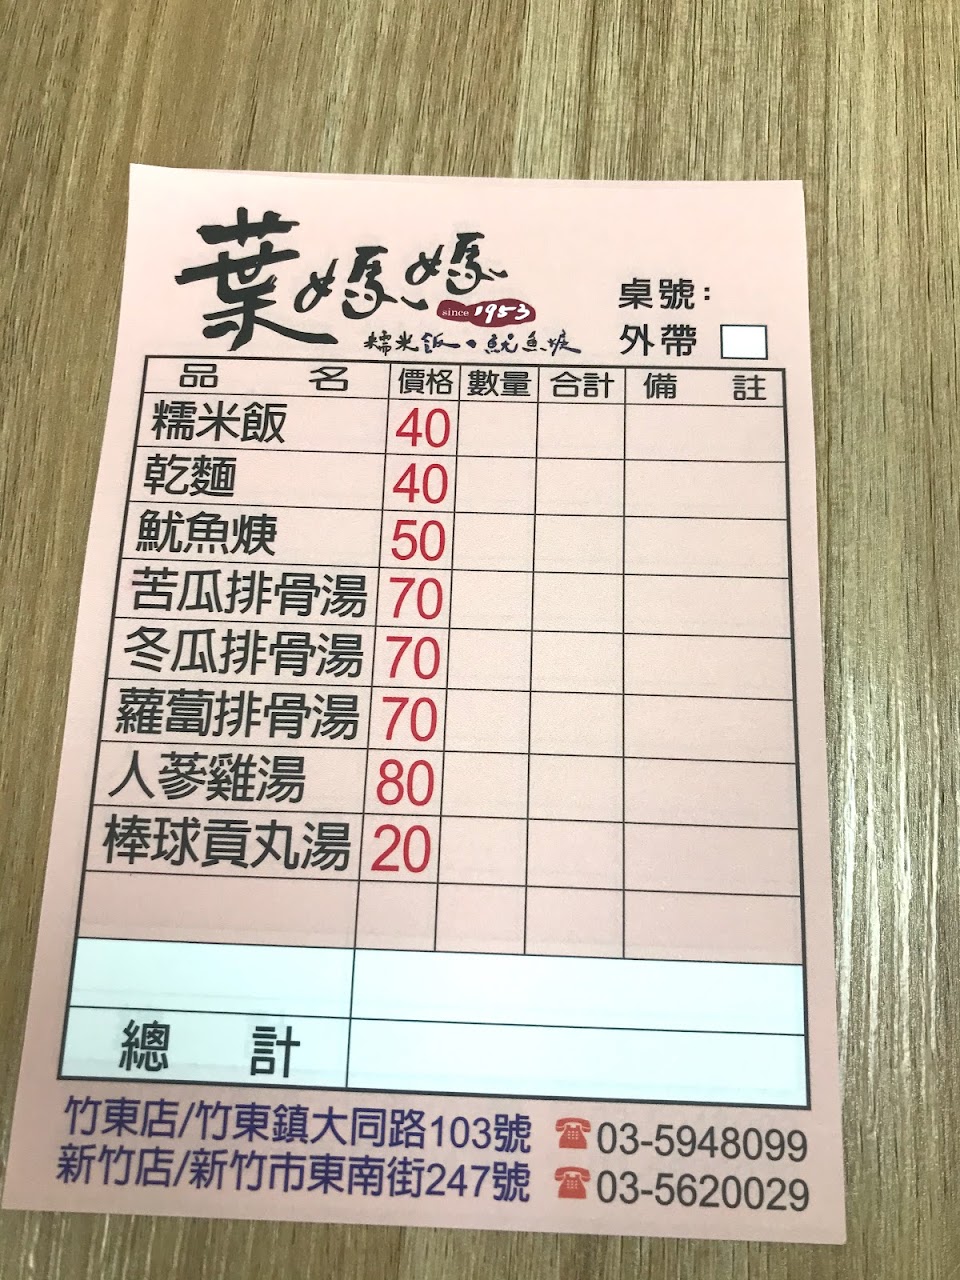 葉媽媽
since 1953
糯米飯、魷魚焿
桌號:
外帶
品名 價格 數量 合計 備註
糯米飯 40
乾麵 40
魷魚焿 50
苦瓜排骨湯 70
冬瓜排骨湯 70
蘿蔔排骨湯 70
人蔘雞湯 80
棒球貢丸湯 20
總計
竹東店/竹東鎮大同路103號 ☎03-5948099
新竹店/新竹市東南街247號 ☎03-5620029